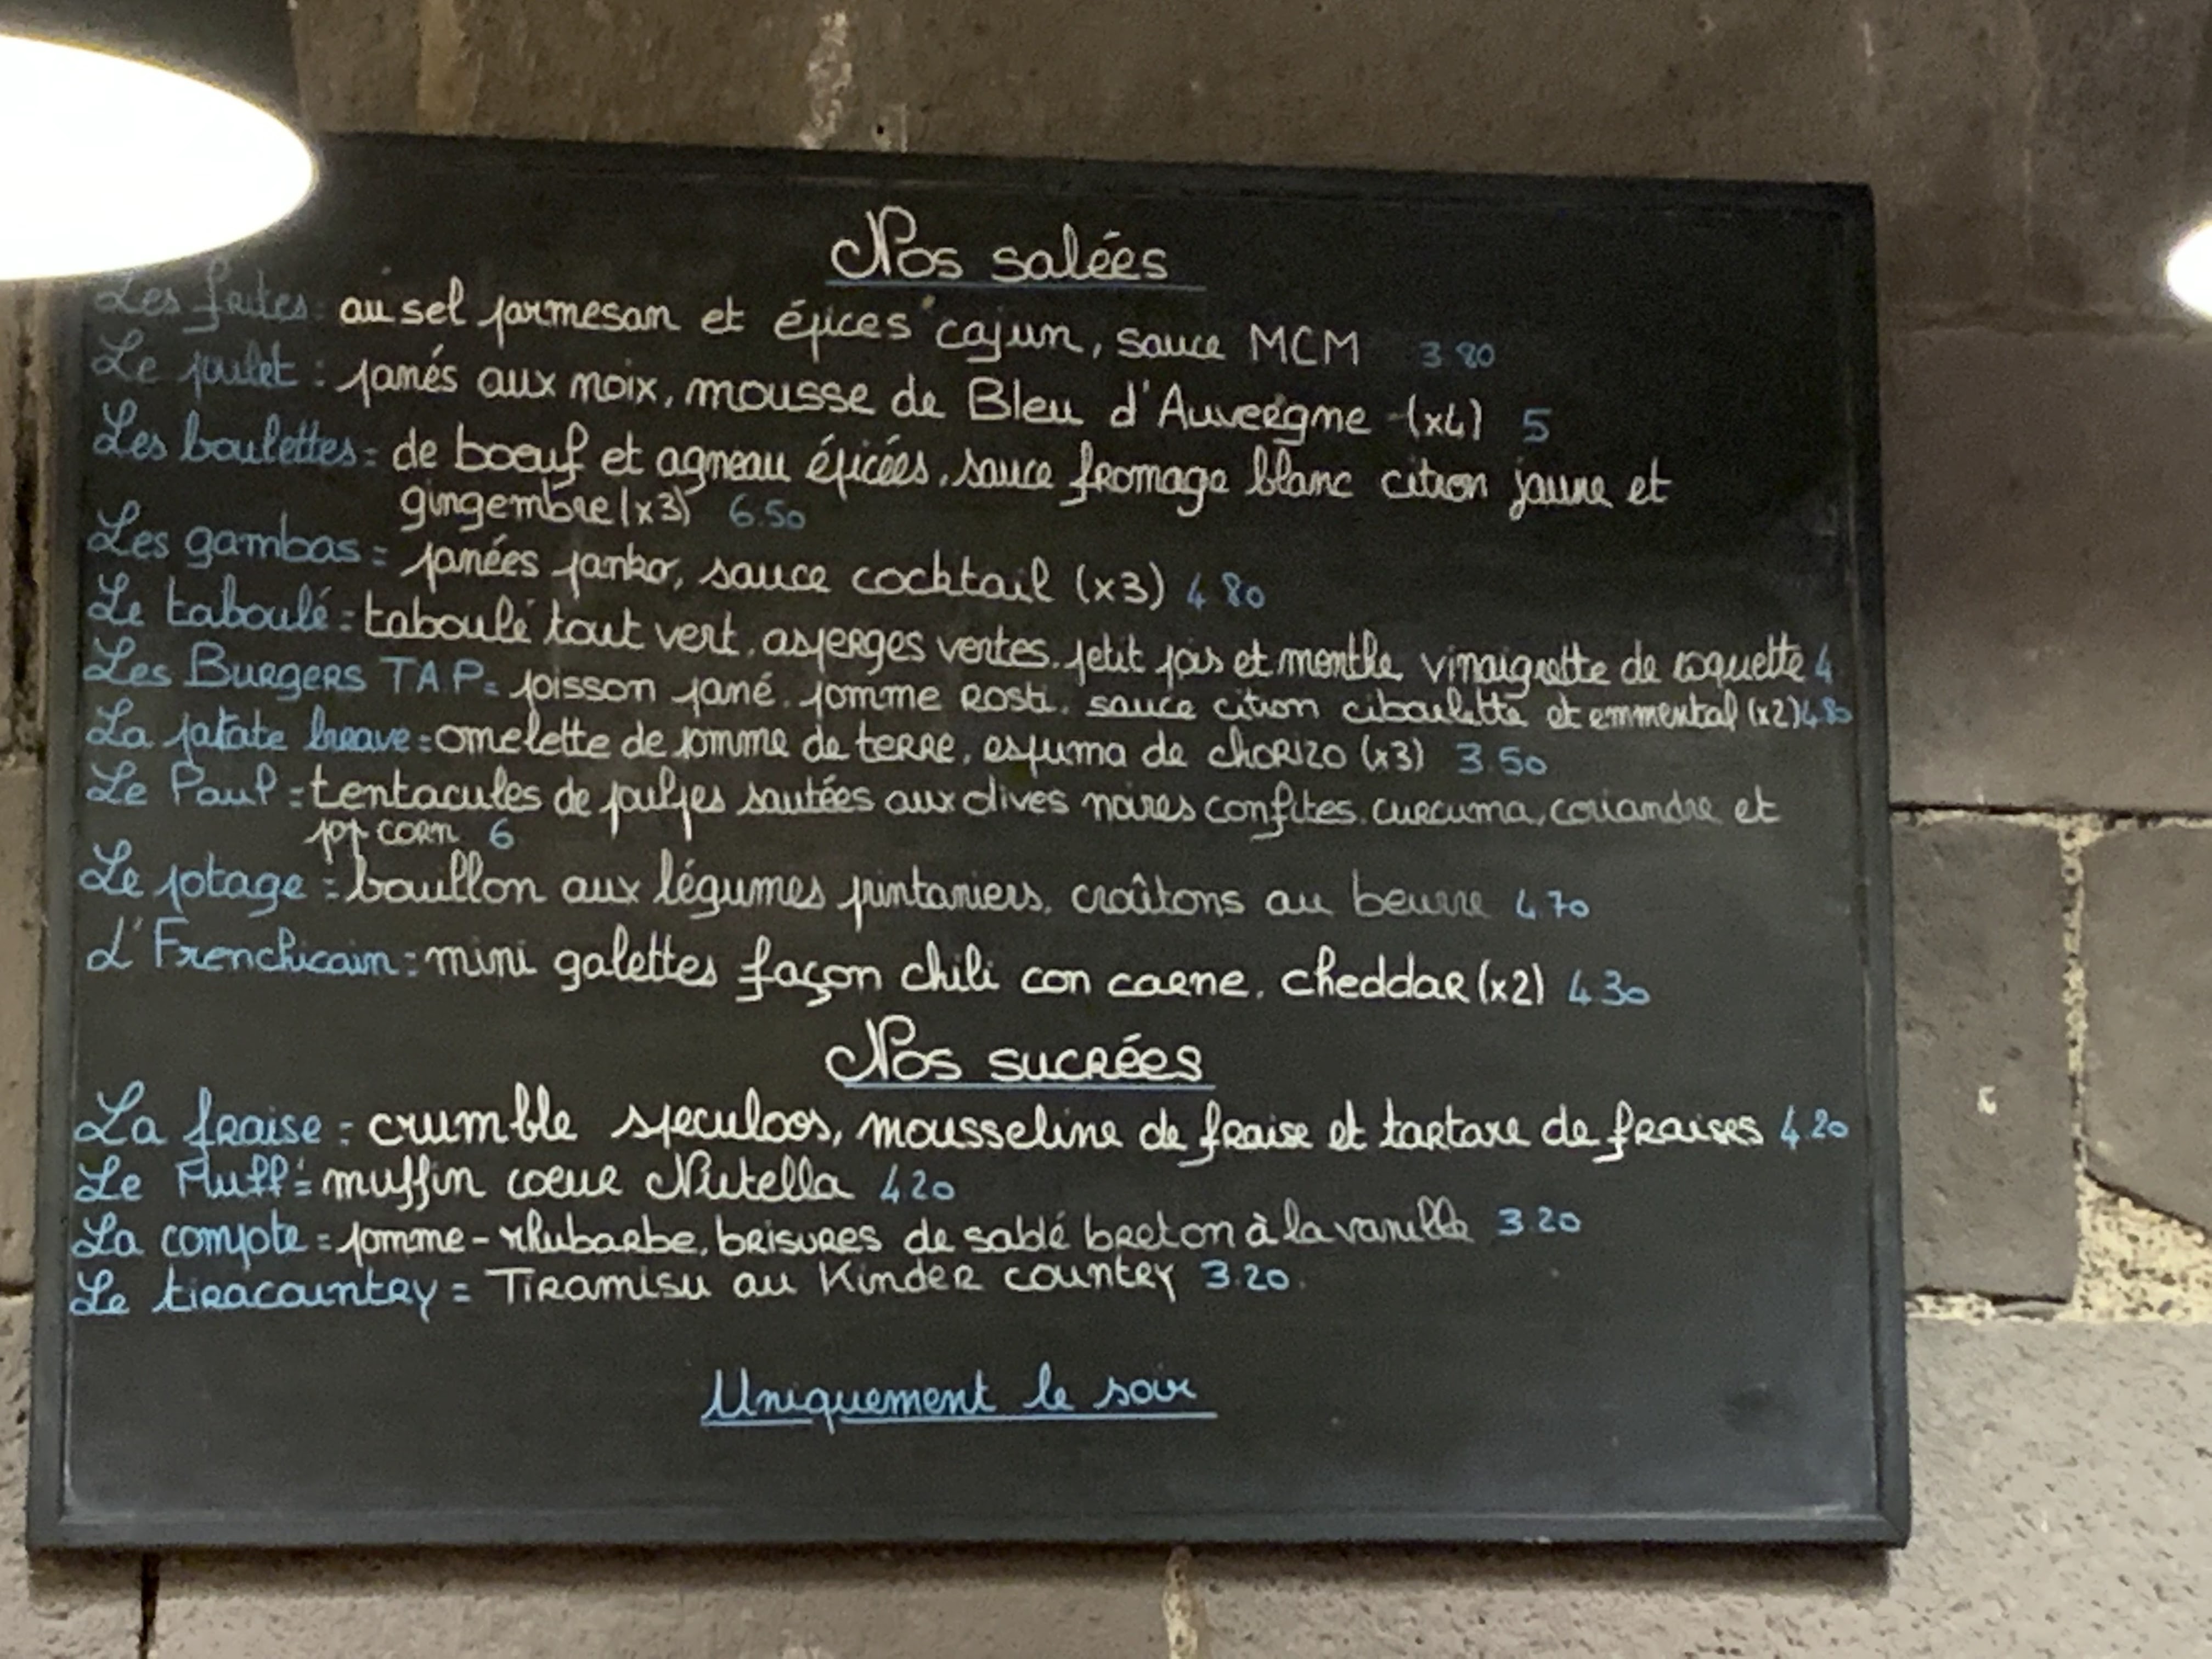 Nos salées
Les frites : au sel parmesan et épices cajun, sauce MCM 3.80
Le poulet : panés aux noix, mousse de Bleu d'Auvergne (x4) 5
Les boulettes = de boeuf et agneau épicées, sauce fromage blanc citron jaune et
gingembre (x3) 6.50
Les gambas = panées panko, sauce cocktail (x3) 4.80
Le taboulé = taboulé tout vert, asperges vertes, petit pois et menthe, vinaigrette de roquette 4
Les Burgers TAP = poisson pané, pomme Rosti, sauce citron ciboulette et emmental (x2) 4.80
La patate brave = omelette de pomme de terre, espuma de chorizo (x3) 3.50
Le Poulp = tentacules de poulpes sautées aux olives noires confites, curcuma, coriandre et
pop corn 6
Le potage = bouillon aux légumes printaniers, croûtons au beurre 4.70
L'Frenchicain = mini galettes façon chili con carne, cheddar (x2) 4.30
Nos sucrées
La fraise = crumble speculoos, mousseline de fraise et tartare de fraises 4.20
Le Fluff = muffin coeur Nutella 4.20
La compote = pomme - rhubarbe, brisures de sablé breton à la vanille 3.20
Le tiracountry = Tiramisu au Kinder country 3.20.
Uniquement le soir